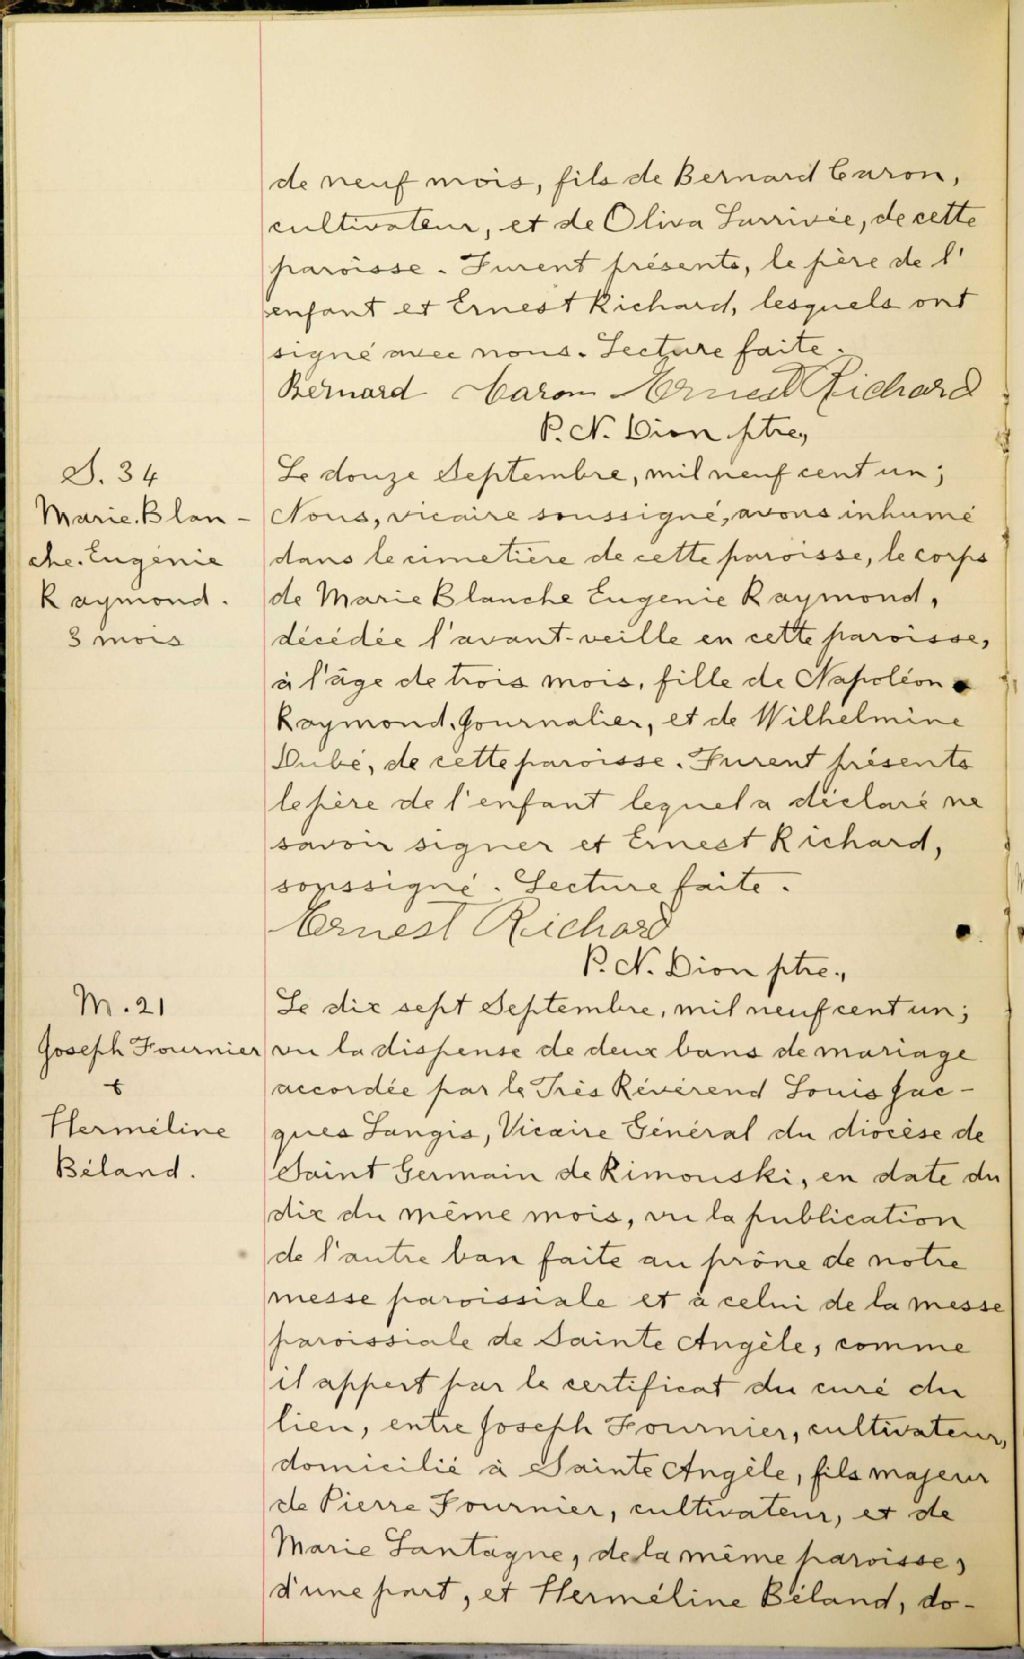 de neuf mois, fils de Bernard Caron,
cultivateur, et de Oliva Larrivée, de cette
paroisse. Furent présents, le père de l'
enfant et Ernest Richard, lesquels ont
signé avec nous. Lecture faite.
Bernard Caron Ernest Richard
P. N. Dion ptre.,
S. 34
Marie. Blan-
che. Eugénie
Raymond.
3 mois
Le douze Septembre, mil neuf cent un;
Nous, vicaire soussigné, avons inhumé
dans le cimetière de cette paroisse, le corps
de Marie Blanche Eugenie Raymond,
décédée l'avant-veille en cette paroisse,
à l'âge de trois mois, fille de Napoléon
Raymond, journalier, et de Wilhelmine
Dubé, de cette paroisse. Furent présents
le père de l'enfant lequel a déclaré ne
savoir signer et Ernest Richard,
soussigné. Lecture faite.
Ernest Richard
P. N. Dion ptre.,
M. 21
Joseph Fournier
&
Herméline
Béland.
Le dix sept Septembre, mil neuf cent un;
vu la dispense de deux bans de mariage
accordée par le Très Révérend Louis Jac-
ques Langis, Vicaire Général du diocèse de
Saint Germain de Rimouski, en date du
dix du même mois, vu la publication
de l'autre ban faite au prône de notre
messe paroissiale et à celui de la messe
paroissiale de Sainte Angèle, comme
il appert par le certificat du curé du
lieu, entre Joseph Fournier, cultivateur,
domicilié à Sainte Angèle, fils majeur
de Pierre Fournier, cultivateur, et de
Marie Lantagne, de la même paroisse,
d'une part, et Herméline Béland, do-